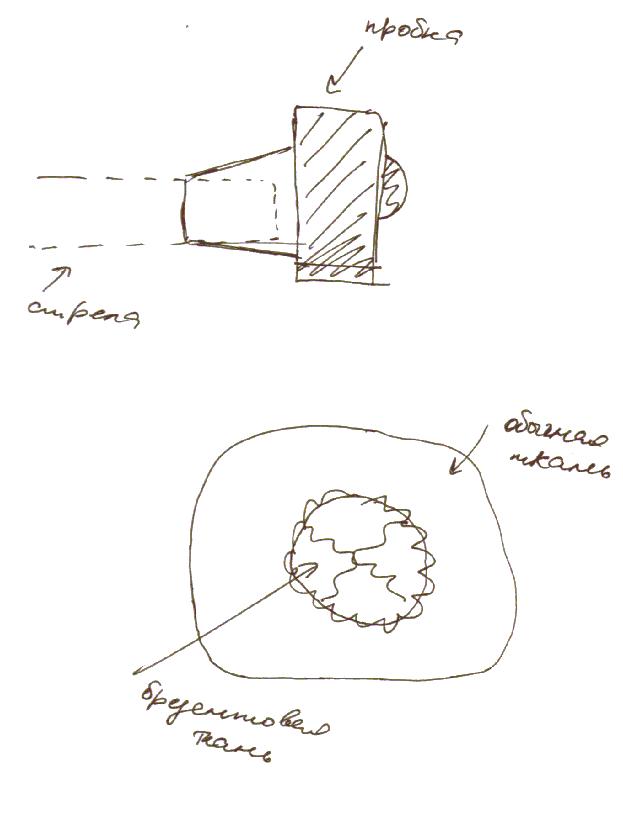 пробка
стрела
обычная
ткань
брезентовая
ткань